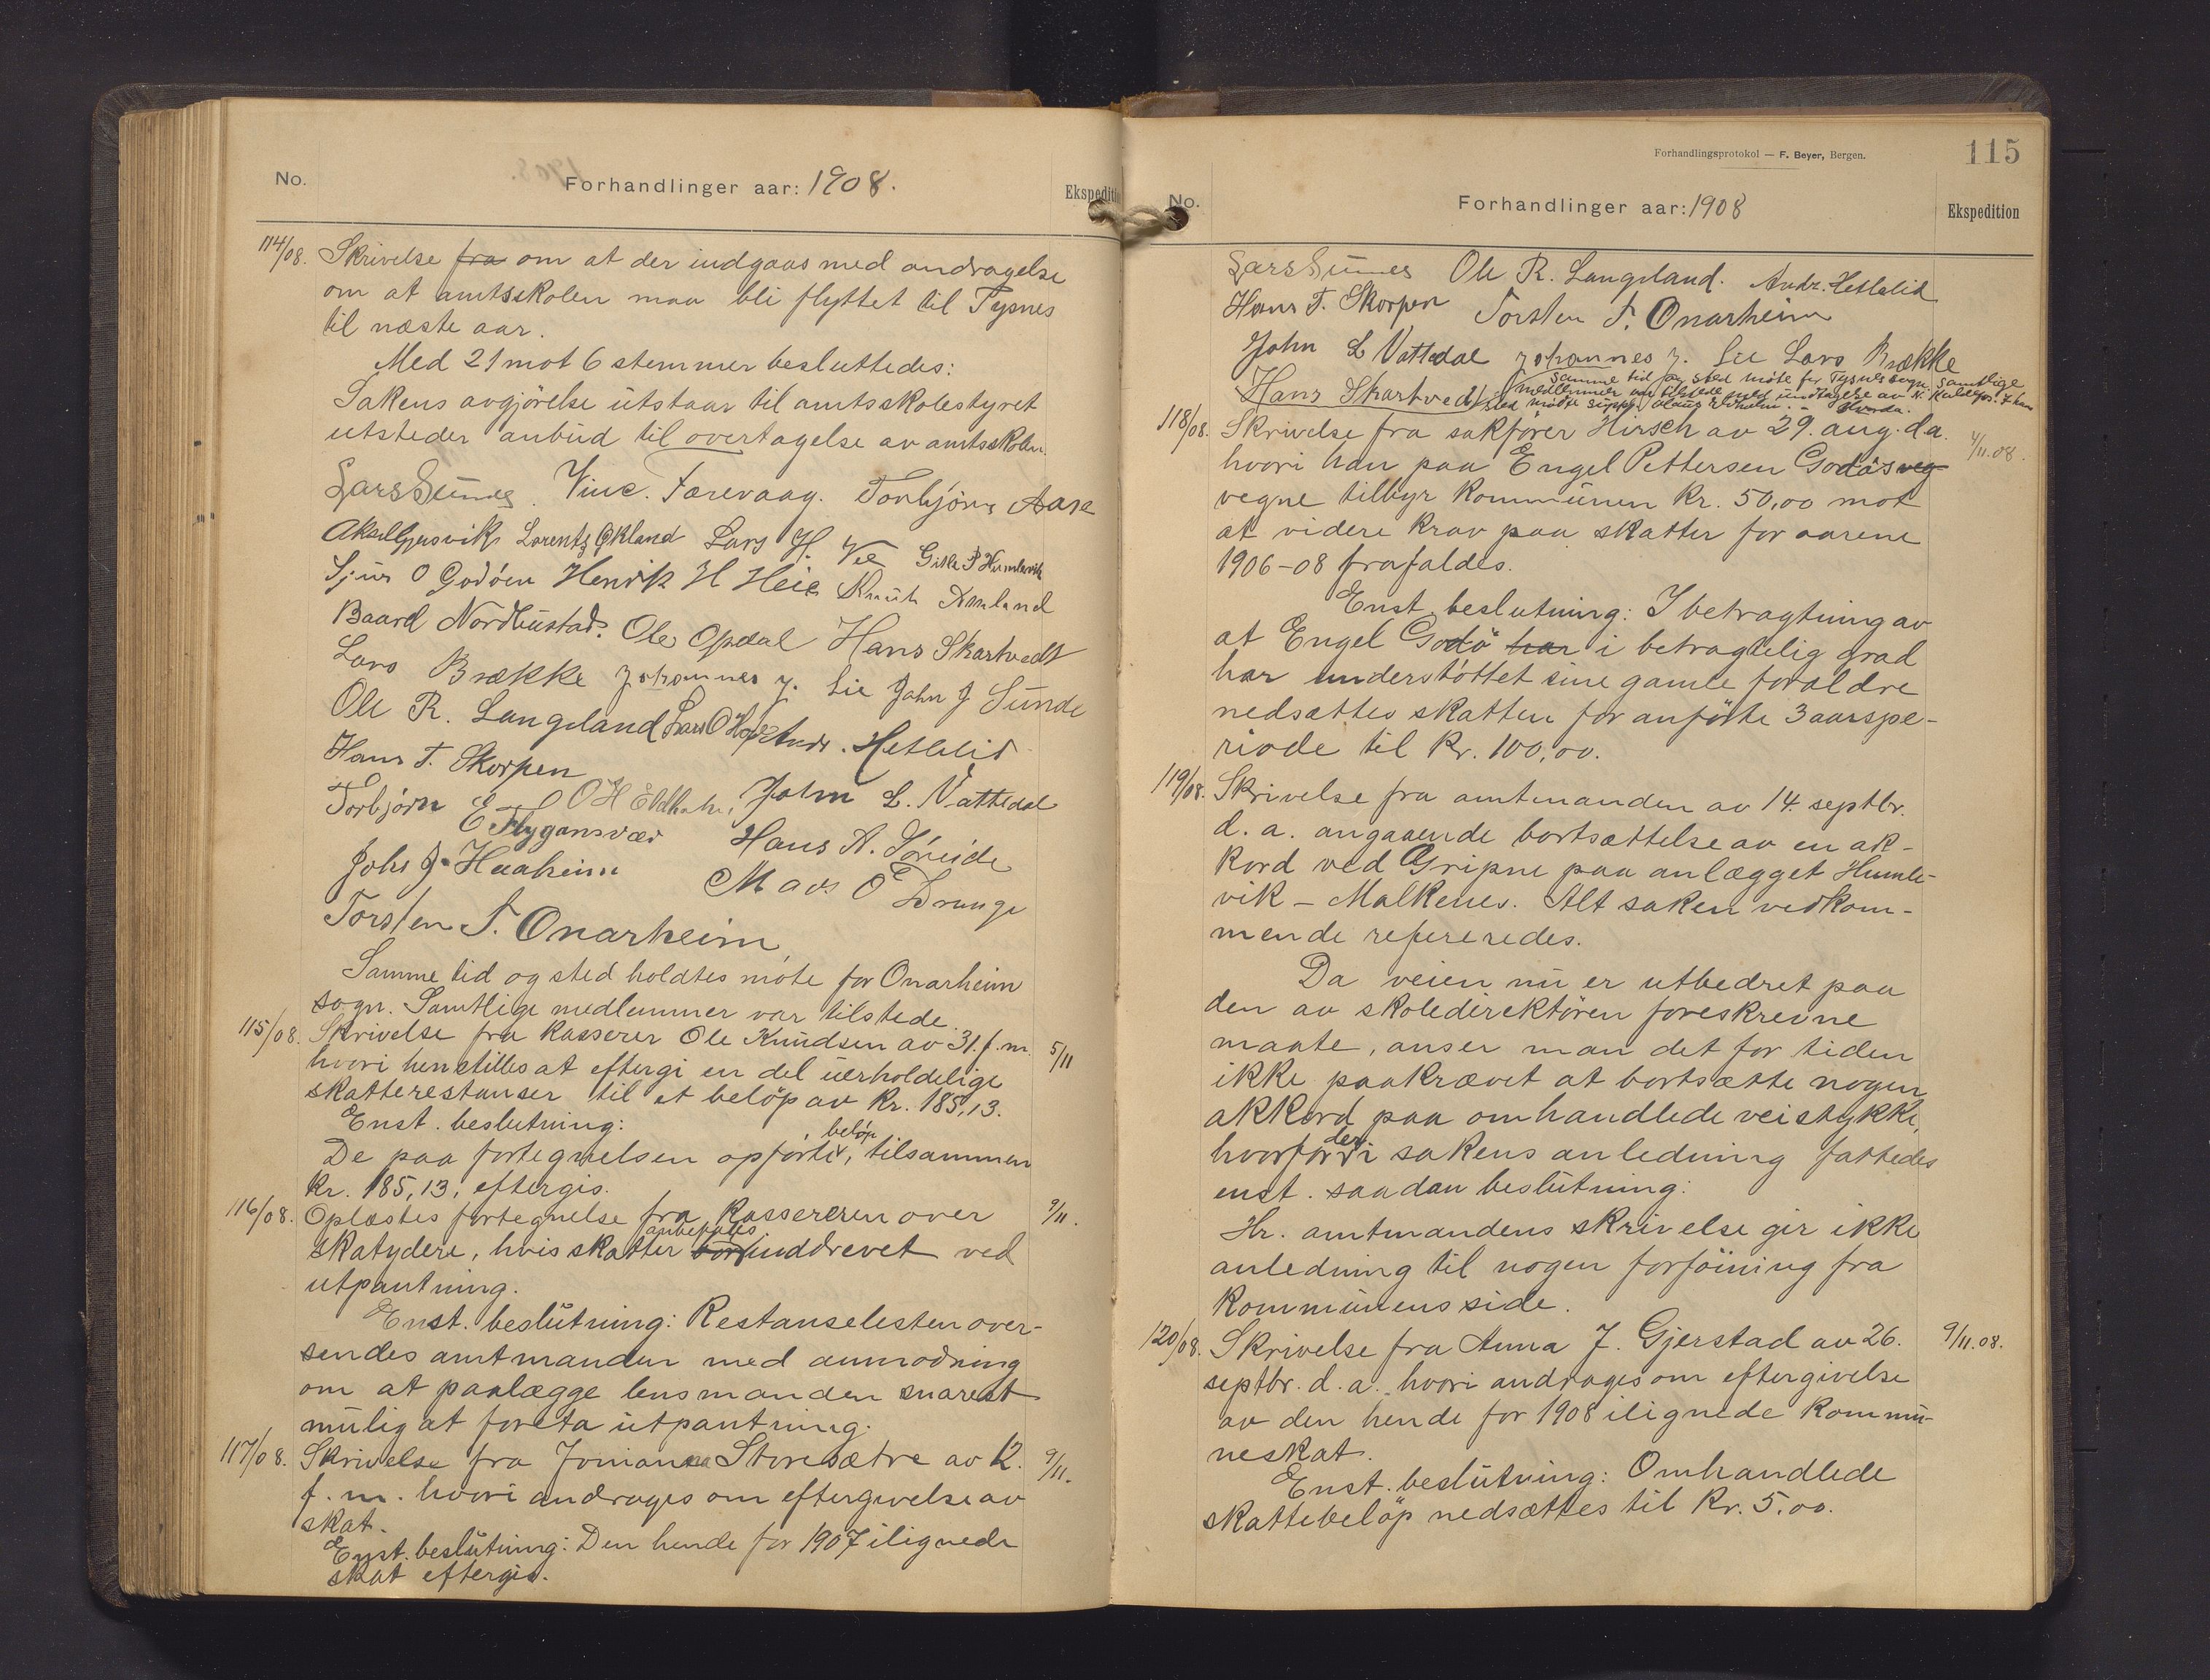 No.
Forhandlinger aar: 1908.
Ekspediti
114/08. Skrivelse fra om at der indgaas med andragelse
om at amtsskolen maa bli flyttet til Tysnes
til næste aar.
Med 21 mot 6 stemmer besluttedes:
Sakens avgjörelse utstaar til amtsskolestyret
utsteder anbud til overtagelse av amtsskolen.
Lars Sunnes. Vinc. Færevaag. Torbjörn Aase
Lorentz Økland Lars H. Vee Gitle P Humlevik
Sjur O Godöen Henrik H Heie Knut Amland
Baard Nordbustad. Ole Opdal Hans Skartvedt
Lars Brække Johannes J. Lie John J Sunde
Ole R. Langeland Lars O Hope Andr. Hetlelid
Hans T. Skorpen
Torbjörn E Flygansvær O H Eldholm, John L. Vattedal
Johs J. Haaheim Hans A. Söreide
Mads O Drange
Torsten T. Onarheim
Samme tid og sted holdtes möte for Onarheim
sogn. Samtlige medlemmer var tilstede.
115/08. Skrivelse fra kasserer Ole Knudsen av 31. f. m. 5/11
hvori henstilles at eftergi en del uerholdelige
skatterestanser til et belöp av kr. 185,13.
Enst. beslutning:
De paa fortegnelsen opförte belöp, tilsammen
kr. 185,13, eftergis.
116/08. Oplæstes fortegnelse fra kassereren over 9/11.
skatydere, hvis skatter anbefales inddrevet ved
utpantning.
Enst. beslutning: Restanselisten over-
sendes amtmanden med anmodning
om at paalægge lensmanden snarest
mulig at foreta utpantning.
117/08. Skrivelse fra Storesætre av 12. 9/11.
f. m. hvori andrages om eftergivelse av
skat.
Enst. beslutning: Den hende for 1907 ilignede
skat eftergis.
Forhandlingsprotokol — F. Beyer, Bergen.
115
No.
Forhandlinger aar: 1908
Ekspedition
Lars Sunnes Ole R. Langeland. Andr. Hetlelid
Hans T. Skorpen Torsten T. Onarheim
John L Vattedal Johannes J. Lie Lars Brække
Hans Skartvedt
Samme tid og sted möte for Tysnes sogn. Samtlige
medlemmer var tilstede med undtagelse av
sted mötte supp. Olaus Eldholm.
118/08. Skrivelse fra sakförer Hirsch av 29. aug. d.a. 4/11.08.
hvori han paa Engel Pettersen Godös veg
vegne tilbyr kommunen kr. 50,00 mot
at videre krav paa skatter for aarene
1906-08 frafaldes.
Enst. beslutning: I betragtning av
at Engel Godö har i betragtelig grad
har understöttet sine gamle forældre
nedsættes skatten for anförte 3 aarspe-
riode til kr. 100,00.
119/08. Skrivelse fra amtmanden av 14 septbr.
d. a. angaaende bortsættelse av en ak-
kord ved Gripne paa anlægget Humle-
vik - Malkenes. Alt saken vedkom-
mende refereredes.
Da veien nu er utbedret paa
den av skoledirektören foreskrevne
maate, anser man det for tiden
ikke paakrævet at bortsætte nogen
akkord paa omhandlede veistykke,
hvorfor der i sakens anledning fattedes
enst. saadan beslutning:
Hr. amtmandens skrivelse gir ikke
anledning til nogen forföining fra
kommunens side.
120/08. Skrivelse fra Anna J. Gjerstad av 26. 9/11.08.
septbr. d. a. hvori andrages om eftergivelse
av den hende for 1908 ilignede kommu-
neskat.
Enst. beslutning: Omhandlede
skattebelöp nedsættes til kr. 5,00.